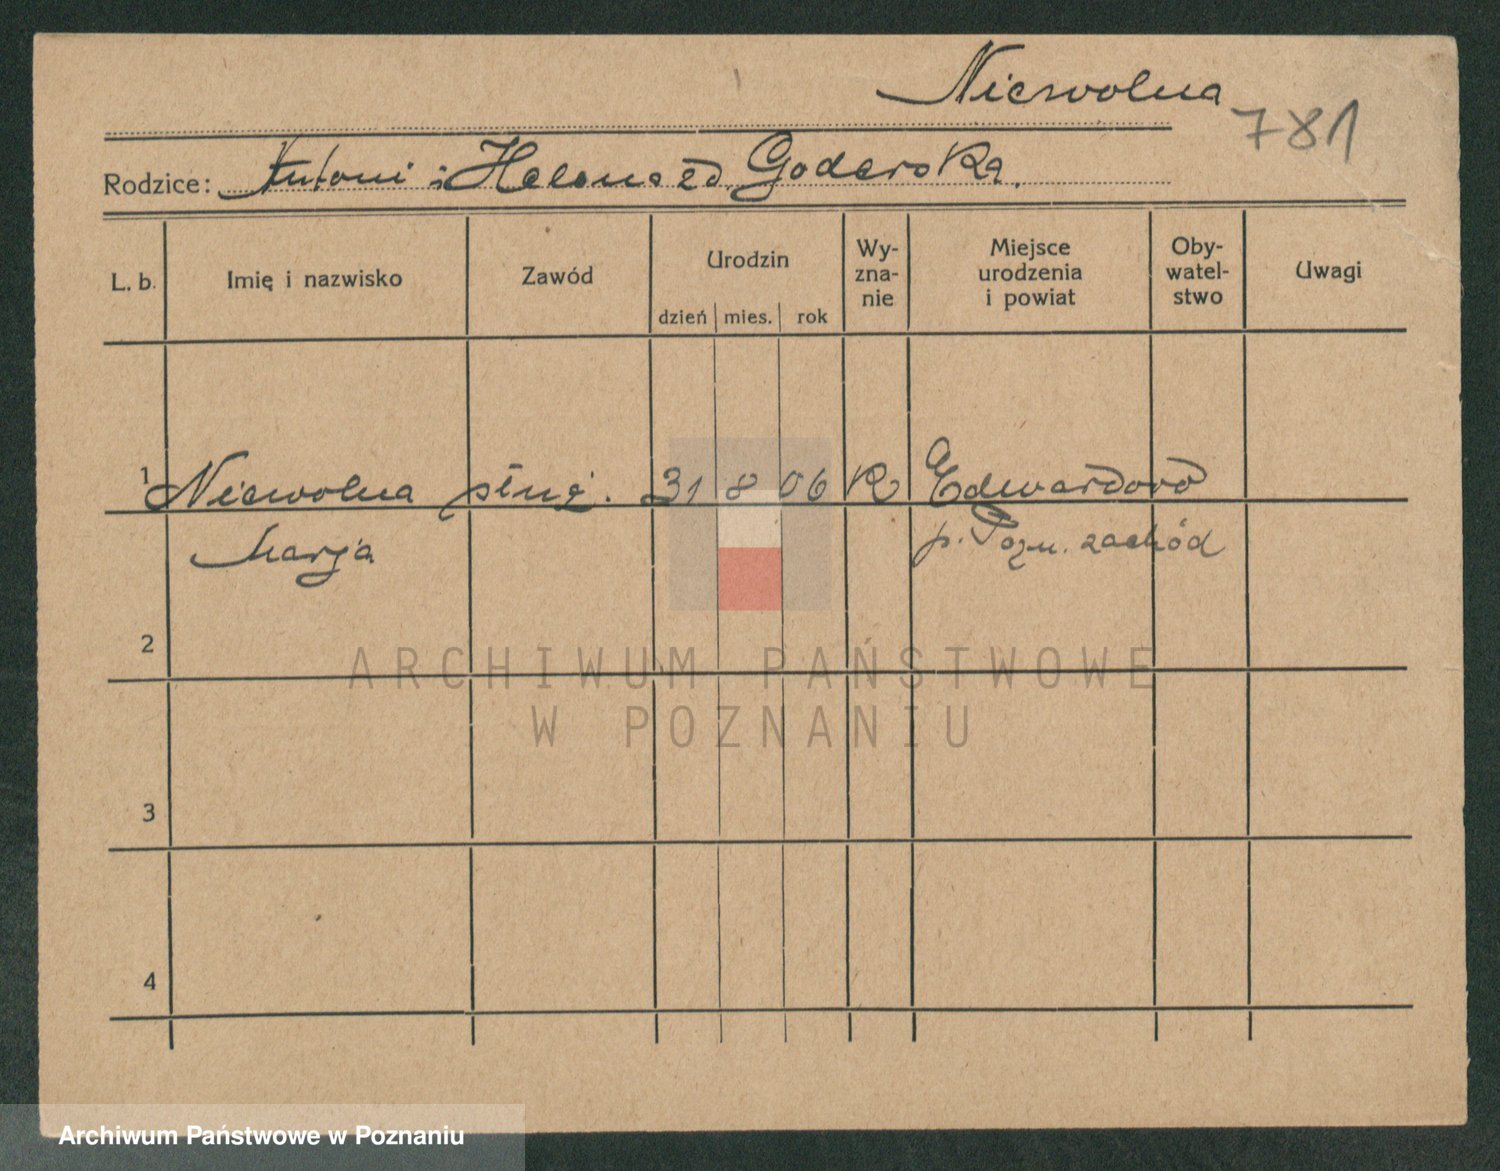 Niewolna
781
Rodzice: Antoni i Helena zd. Goderska.
L. b. Imię i nazwisko Zawód Urodzin dzień mies. rok Wy-zna-nie Miejsce urodzenia i powiat Oby-watel-stwo Uwagi
1 Niewolna służ. 31 8 06 R Edwardowo
Marja p. Pozn. zachód
2
ARCHIWUM PAŃSTWOWE
W POZNANIU
3
4
Archiwum Państwowe w Poznaniu